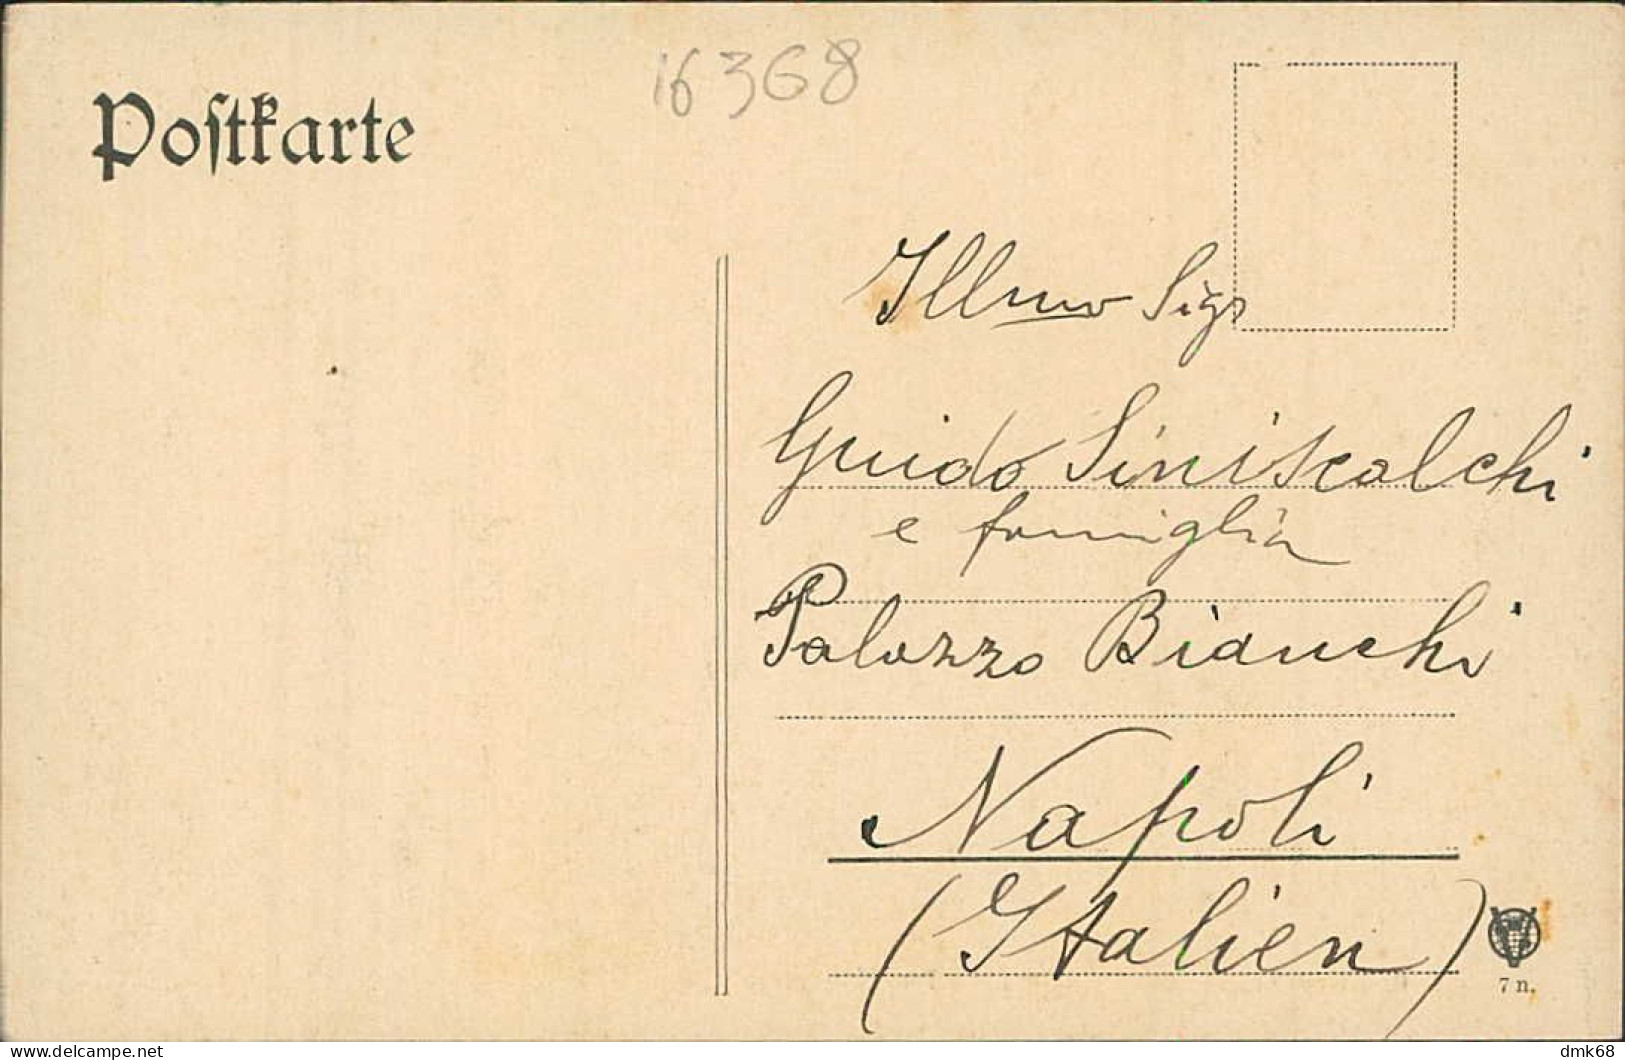 16368
Poſtkarte
Illmo Sigr
Guido Siniscalchi
e famiglia
Palazzo Bianchi
Napoli
(Italien)
7 n.
delcampe.net
dmk68